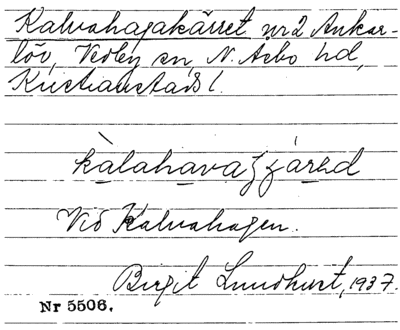 Kalvahagakärret nr 2 Ankar-
löv, Vedby sn, N. Åsbo hd,
Kristianstads l.
kàlahava ʒárəd
Vid Kalvahagen.
Birgit Lundhurst, 1937.
Nr 5506.